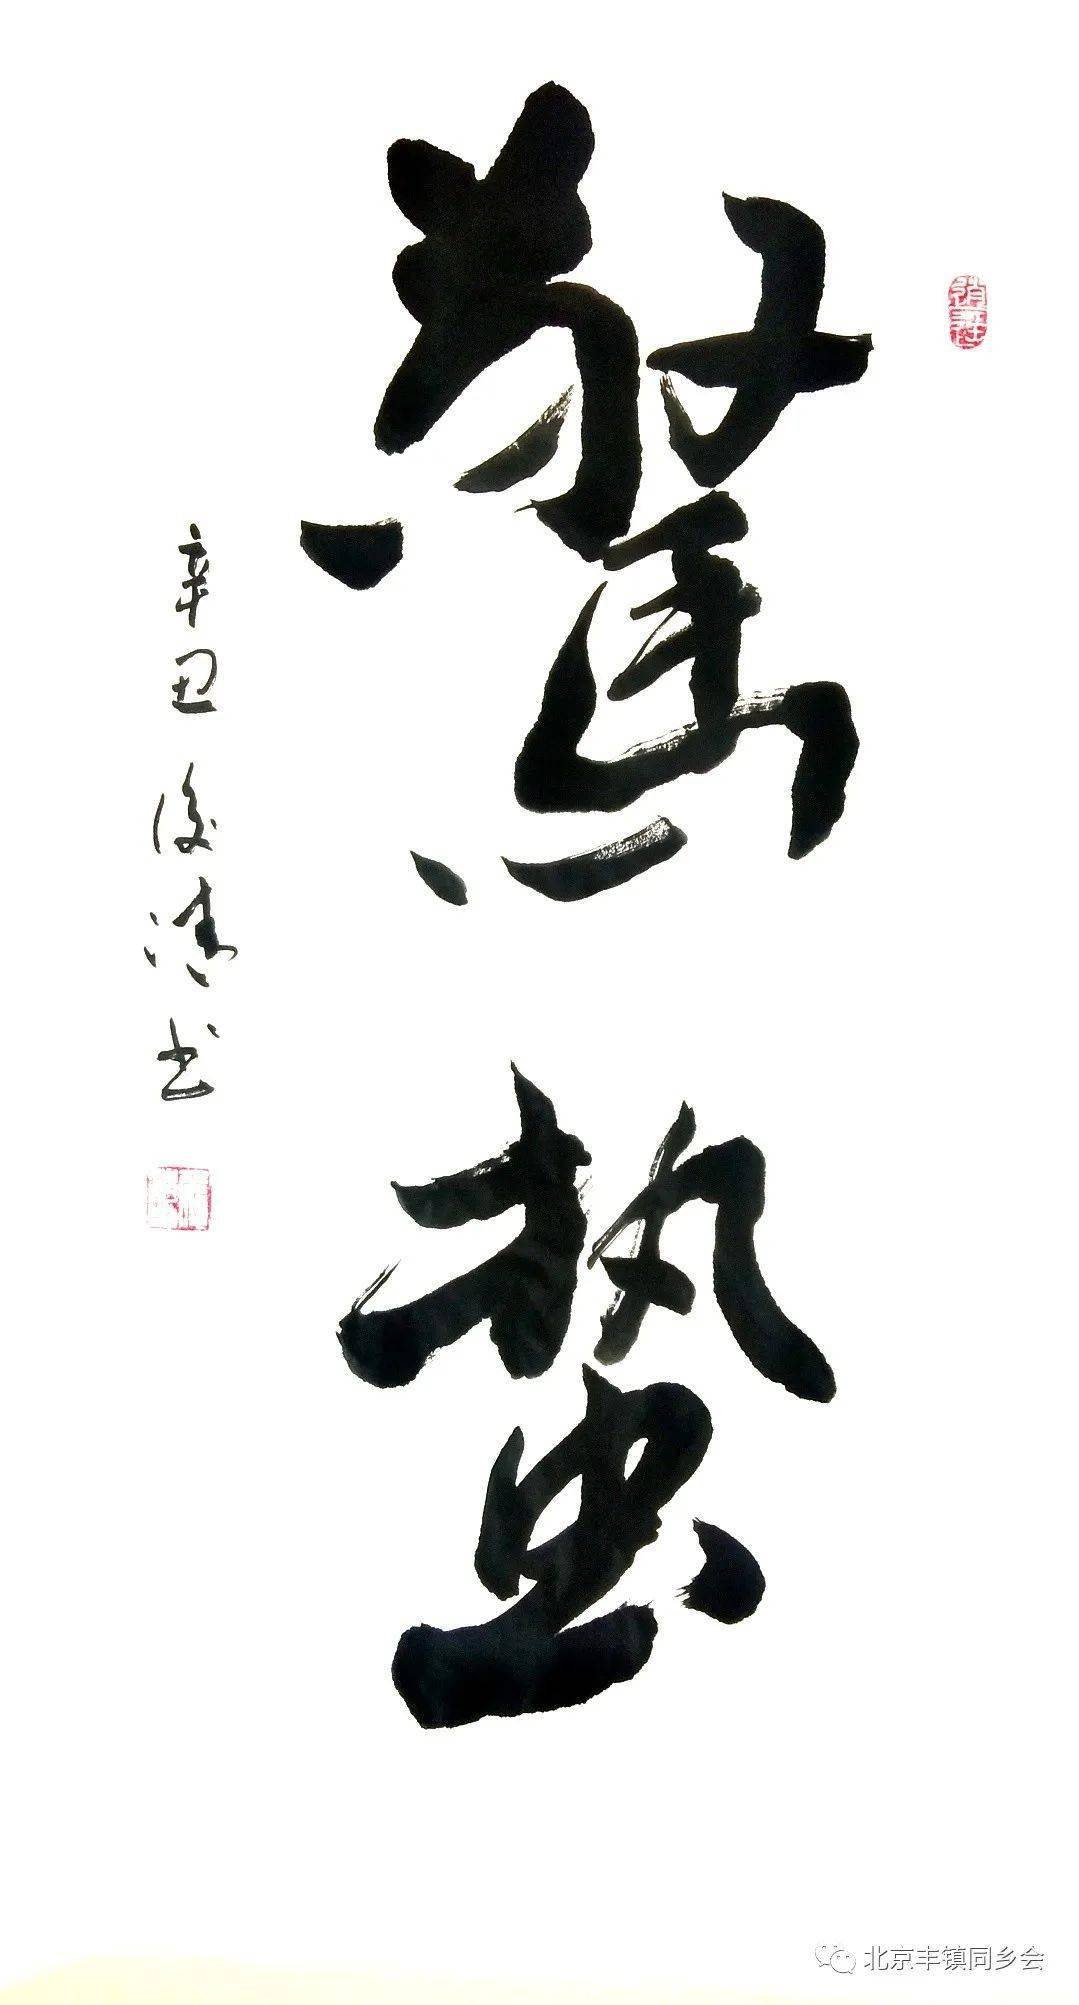 驚蟄
辛丑俊清书
北京丰镇同乡会